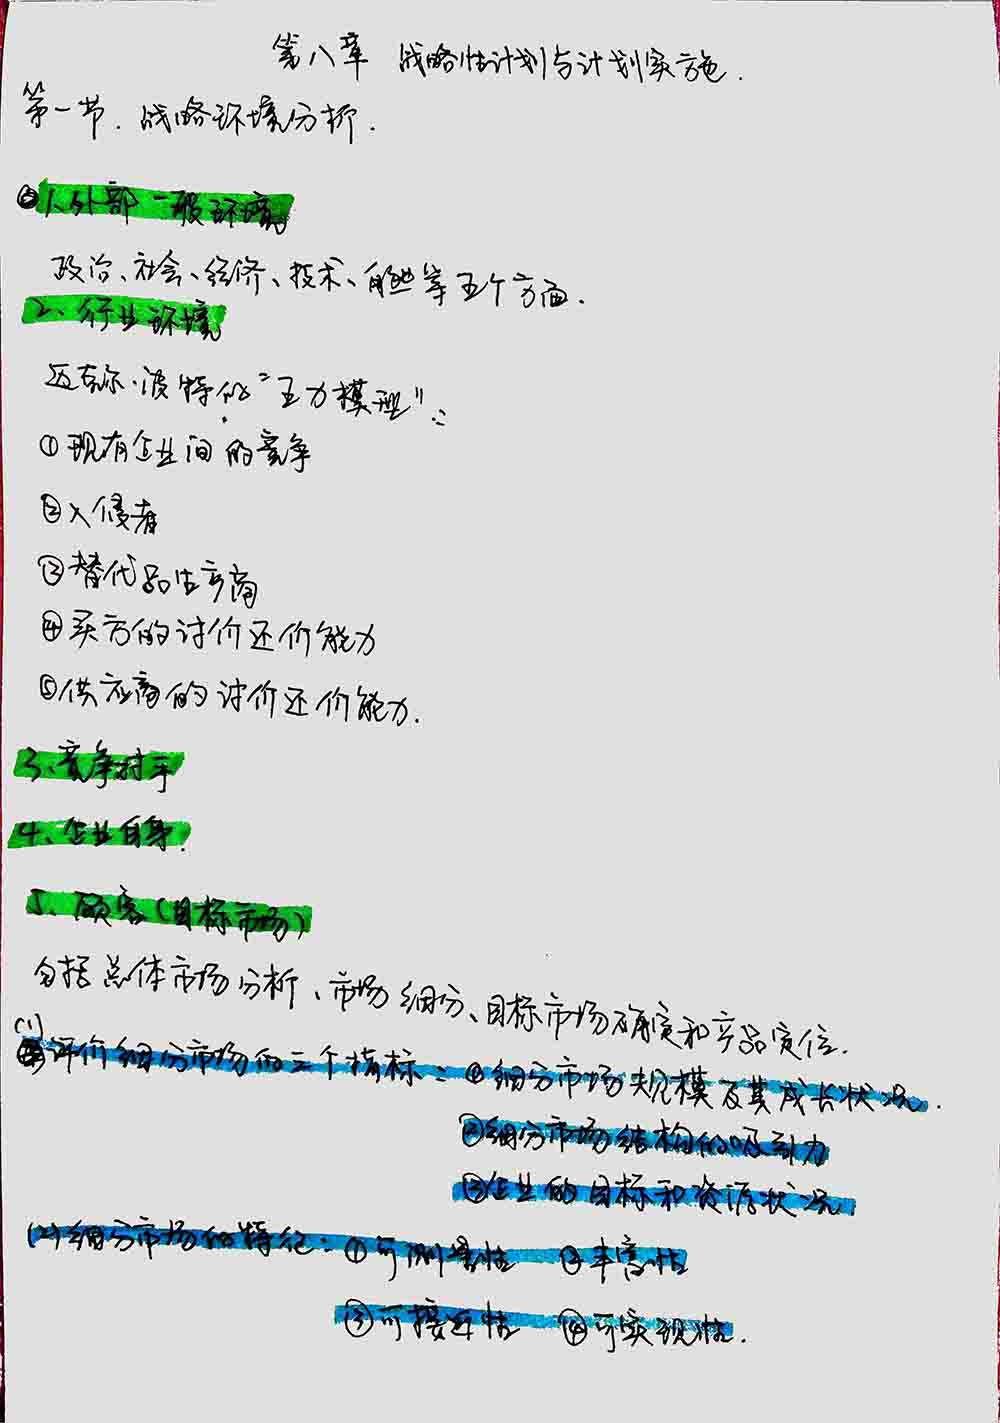 第八章 战略性计划与计划实施.
第一节. 战略环境分析.
1、外部一般环境
政治、社会、经济、技术、自然等五个方面.
2、行业环境
迈克尔·波特的"五力模型":
①现有企业间的竞争
②入侵者
③替代品生产商
④买方的讨价还价能力
⑤供应商的讨价还价能力.
3、竞争对手
4、企业自身.
5、顾客(目标市场)
包括总体市场分析、市场细分、目标市场确定和产品定位.
(1)评价细分市场的三个指标: ①细分市场规模及其成长状况.
②细分市场结构的吸引力
③企业的目标和资源状况.
(2)细分市场的特征: ①可测量性 ②丰富性
③可接近性 ④可实现性.